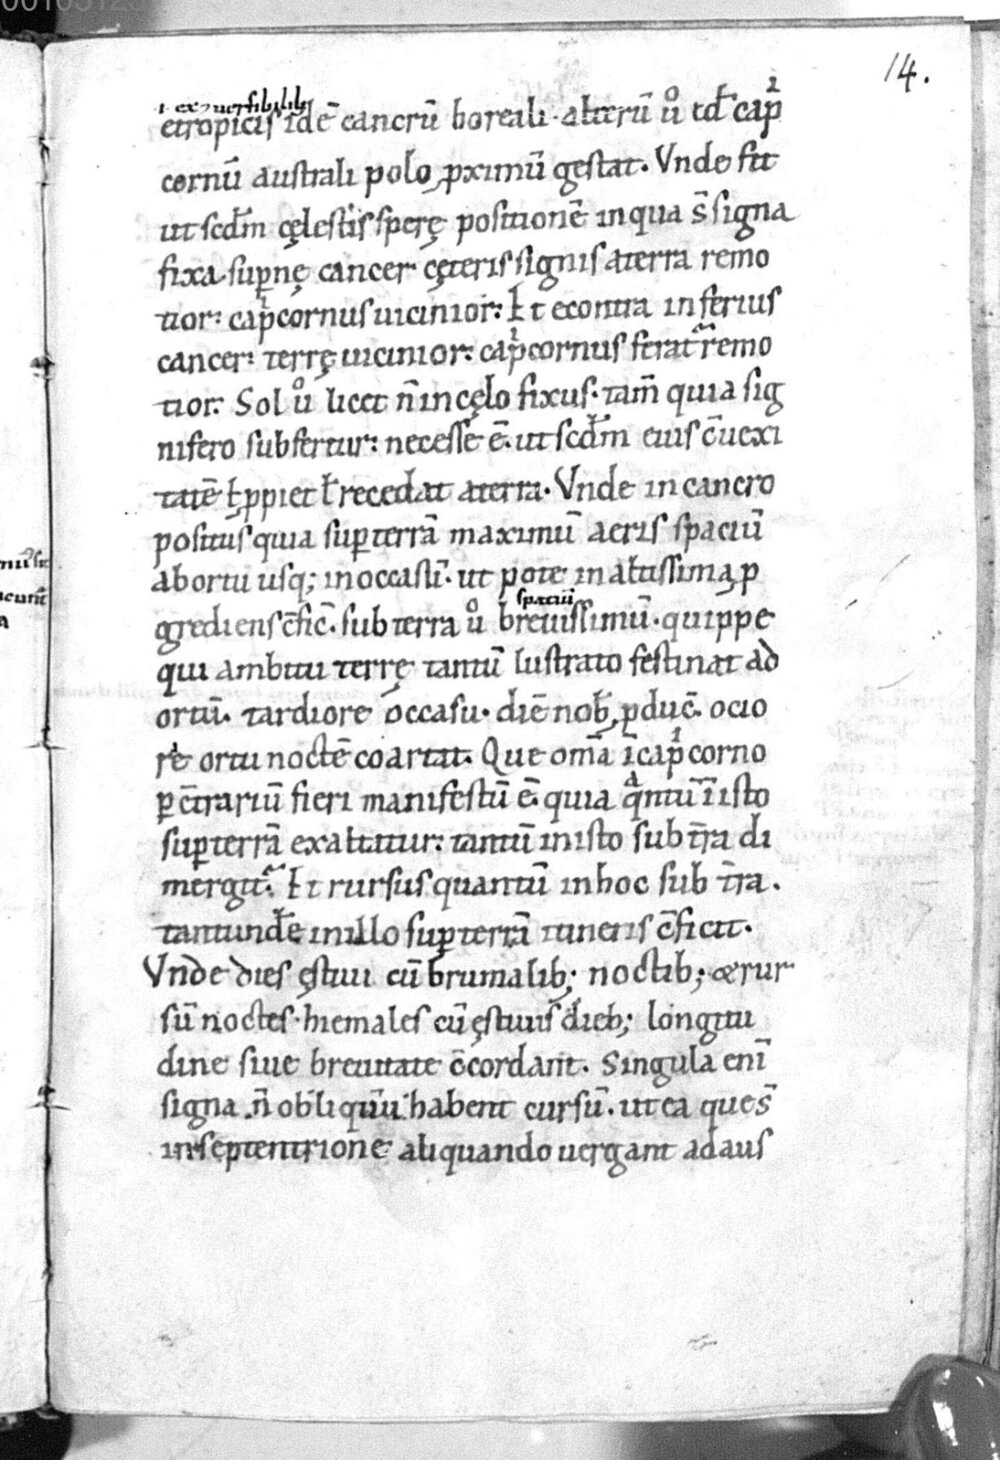 14.
.i. exquersibilib;
etropicis idē cancrū boreali· alterū ů id ̄ capⁱ
cornū australi polo ꝓximū gestat· Vnde fit
ut scdm̄ cęlestis sperę positionē inqua s̄ signa
fixa· suꝑnę cancer cęteris signis aterra remo
tior: capⁱcornus uicinior: Et econtra inferius
cancer: terrę uicinior: capⁱcornus ferat᷑ remo
tior: Sol ů licet n̄ incęlo fixus· tam̄ quia sig
nifero subfertur: necesse ē· ut scdm̄ eius c̄uexi
tatē ł ꝓpiet ł recedat aterra· Vnde incancro
positus quia suꝑterrā maximū aeris spaciū
abortu usq; inoccasū· ut pote inaltissima ꝓ
grediens c̄fic̄· subterra ů breuissimū· quippe
spaciū
qui ambitu terrę tantū lustrato festinat ad
ortū· tardiore occasu· diē nob̄ ꝓduc̄· ocio
re ortu noctē coartat· Que om̄a ī capⁱcorno
ꝑ c̄trariū fieri manifestū ē· quia qᵃntū ī isto
suꝑterrā exaltatur: tantū inisto sub t̄ra di
mergit᷑· Et rursus quantū inhoc sub t̄ra·
tantundē inillo suꝑterrā itineris c̄ficit·
Vnde dies ęstiui cū brumalib; noctib; & rur
sū noctes· hiemales cū ęstiuis dieb; longitu
dine siue breuitate c̄cordant· Singula enī
signa n̄ obliquū habent cursū· ut ea que s̄
inseptentrione aliquando uergant adaus